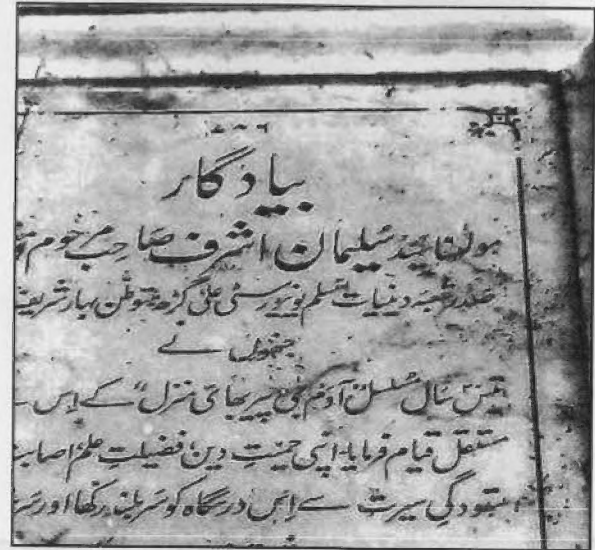 ۷۸۶
بیادگار
مولانا سید سلیمان اشرف صاحب مرحوم
صدر شعبہ دینیات مسلم یونیورسٹی علی گڑھ متوطن بہار شریف
جنہوں نے
تیس سال مسلسل آدم جی پیر بھائی منزل کے اس
مستقل قیام فرمایا اپنی حمیتِ دین، فضیلتِ علم، اصابت
سیرت سے اِس درسگاہ کو سربلند رکھا اور